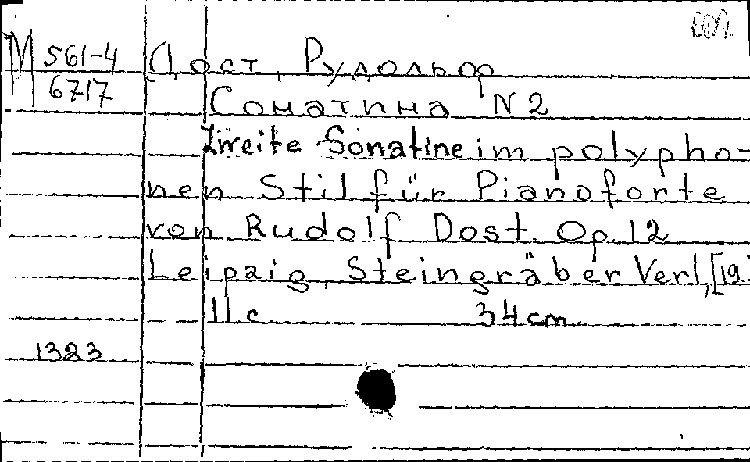 М 561-4
6717
Дост, Рудольф
Сонатина N 2
Zweite Sonatine im polypho=
nen Stil für Pianoforte
von Rudolf Dost. Op. 12
Leipzig, Steingräber Verl, [19
11 с. 34 cm
1323